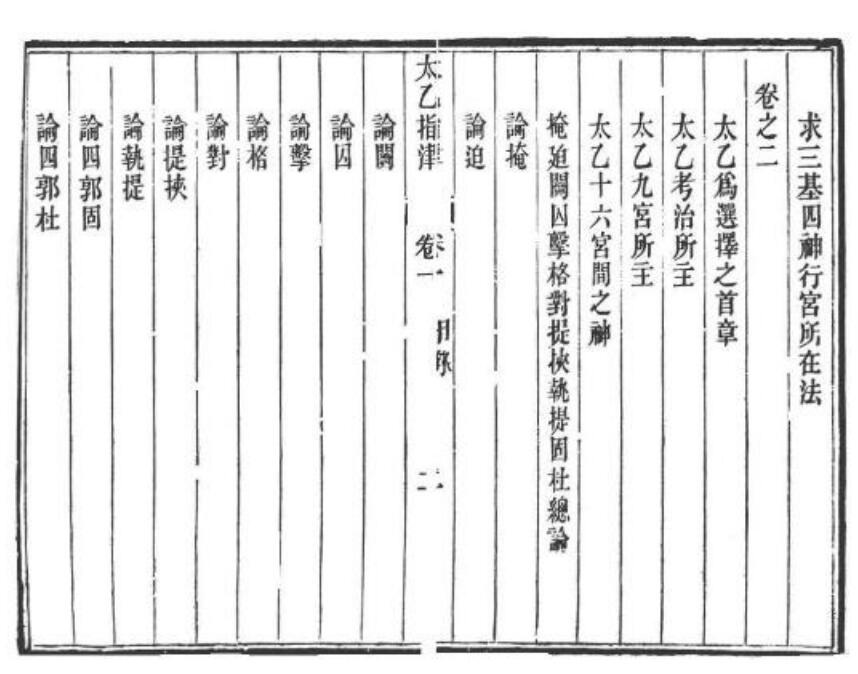 求三基四神行宮所在法
卷之二
太乙爲選擇之首章
太乙考治所主
太乙九宮所主
太乙十六宮間之神
掩迫關囚擊格對提挾執提固杜總論
論掩
論迫
太乙指津 卷一 目錄 二
論關
論囚
論擊
論格
論對
論提挾
論執提
論四郭固
論四郭杜